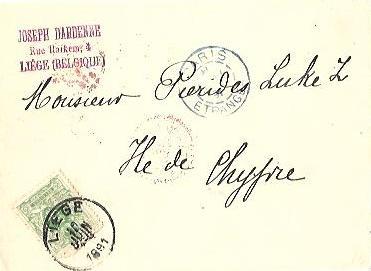 JOSEPH DARDENNE
Rue Raikem, 4
LIÉGE (BELGIQUE)
PARIS
ETRANGER
Monsieur Pierides Luke Z
Ile de Chypre
LIEGE
1891